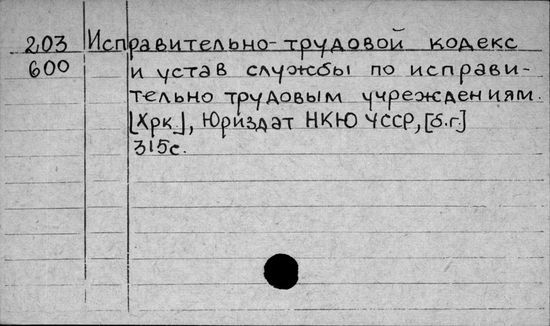 203 Исправительно-трудовой кодекс
600 и устав службы по исправи-
тельно трудовым учреждениям.
[Хрк.], Юриздат НКЮ УССР, [б.г.]
315с.